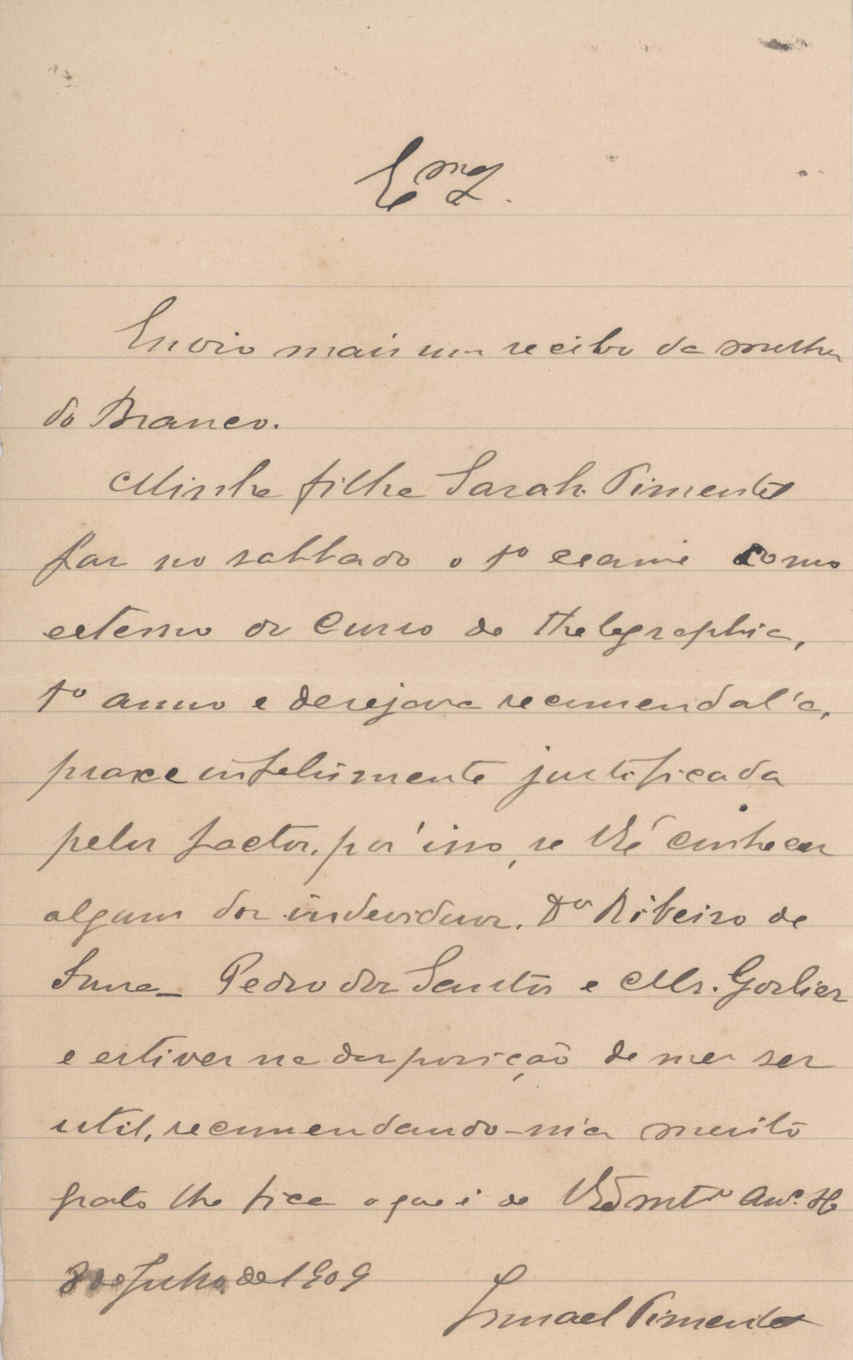 Envio mais um recibo da mulher
do Branco.
Minha filha Sarah Pimentel
faz no sabbado o 1º exame como
externo do Curso de thelegraphia,
1º anno e desejava recumendal'a,
praxe infelismente justificada
pelos factos, por isso, se Vcê conhecer
algum dos individuos. Dor Ribeiro de
Pedro dos Santos e Mr. Gorlier
e estiver na desposição de me ser
util, recumendando-m'a muito
grato lhe fica o que é de Vcê mtº
8 de Julho de 1909
Ismael Pimentel